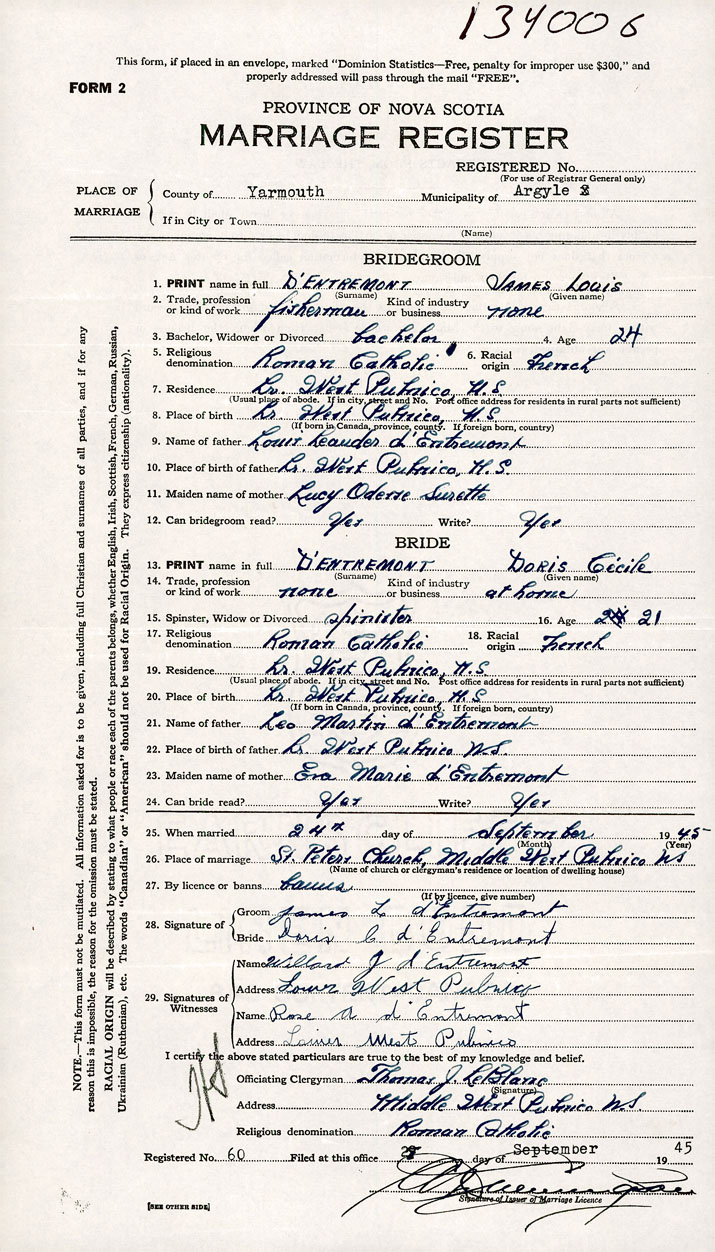 134006
This form, if placed in an envelope, marked "Dominion Statistics—Free, penalty for improper use $300," and
properly addressed will pass through the mail "FREE".
FORM 2
PROVINCE OF NOVA SCOTIA
MARRIAGE REGISTER
REGISTERED No.
(For use of Registrar General only)
PLACE OF MARRIAGE
County of Yarmouth Municipality of Argyle
If in City or Town
(Name)
BRIDEGROOM
1. PRINT name in full D'ENTREMONT JAMES LOUIS
(Surname) (Given name)
2. Trade, profession or kind of work fisherman Kind of industry or business none
3. Bachelor, Widower or Divorced bachelor 4. Age 24
5. Religious denomination Roman Catholic 6. Racial origin French
7. Residence Lr. West Pubnico, N.S.
(Usual place of abode. If in city, street and No. Post office address for residents in rural parts not sufficient)
8. Place of birth Lr. West Pubnico, N.S.
(If born in Canada, province, county. If foreign born, country)
9. Name of father Louis Leander d'Entremont
10. Place of birth of father Lr. West Pubnico, N.S.
11. Maiden name of mother Lucy Odesse Surette
12. Can bridegroom read? Yes Write? Yes
BRIDE
13. PRINT name in full D'ENTREMONT DORIS CÉCILE
(Surname) (Given name)
14. Trade, profession or kind of work none Kind of industry or business at home
15. Spinster, Widow or Divorced spinister 16. Age 21
17. Religious denomination Roman Catholic 18. Racial origin French
19. Residence Lr. West Pubnico, N.S.
(Usual place of abode. If in city, street and No. Post office address for residents in rural parts not sufficient)
20. Place of birth Lr. West Pubnico, N.S
(If born in Canada, province, county. If foreign born, country)
21. Name of father Leo Martin d'Entremont
22. Place of birth of father Lr. West Pubnico N.S.
23. Maiden name of mother Eva Marie d'Entremont
24. Can bride read? Yes Write? Yes
25. When married 24th day of September 1945
(Month) (Year)
26. Place of marriage St. Peters Church, Middle West Pubnico NS
(Name of church or clergyman's residence or location of dwelling house)
27. By licence or banns banns
(If by licence, give number)
28. Signature of Groom James L d'Entremont
Bride Doris C d'Entremont
29. Signatures of Witnesses
Name Willard J d'Entremont
Address Lower West Pubnico
Name Rose A d'Entremont
Address Lower West Pubnico
I certify the above stated particulars are true to the best of my knowledge and belief.
Officiating Clergyman Thomas J. LeBlanc
(Signature)
Address Middle West Pubnico N.S.
Religious denomination Roman Catholic
Registered No. 60 Filed at this office day of September 1945
Signature of Issuer of Marriage Licence
[SEE OTHER SIDE]
NOTE.—This form must not be mutilated. All information asked for is to be given, including full Christian and surnames of all parties, and if for any
reason this is impossible, the reason for the omission must be stated.
RACIAL ORIGIN will be described by stating to what people or race each of the parents belongs, whether English, Irish, Scottish, French, German, Russian,
Ukrainian (Ruthenian), etc. The words "Canadian" or "American" should not be used for Racial Origin. They express citizenship (nationality).